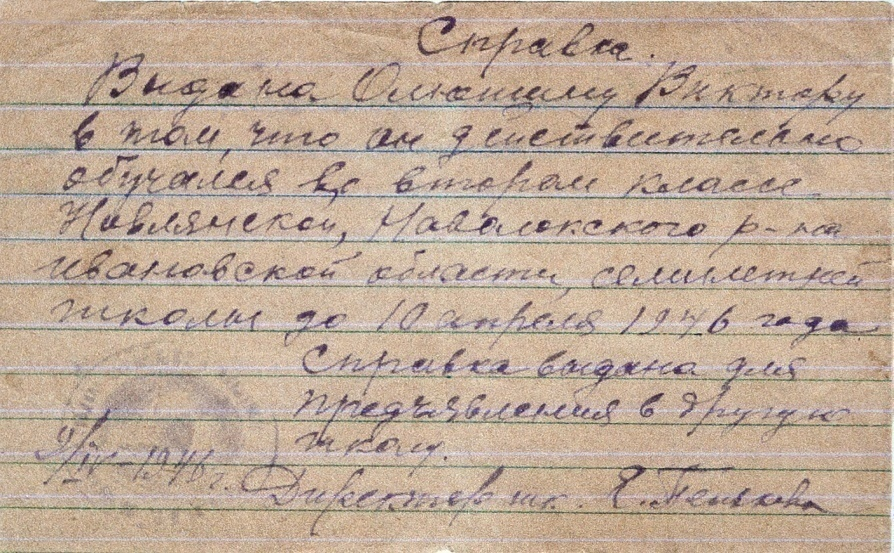 Справка.
Выдана Олюнину Виктору
в том, что он действительно
обучался во втором классе
Новлянской, Наволокского р-на
Ивановской области, семилетней
школы до 10 апреля 1946 года
Справка выдана для
предъявления в другую
школу.
9/IV-1946 г. Директор шк. Е. Пенькова